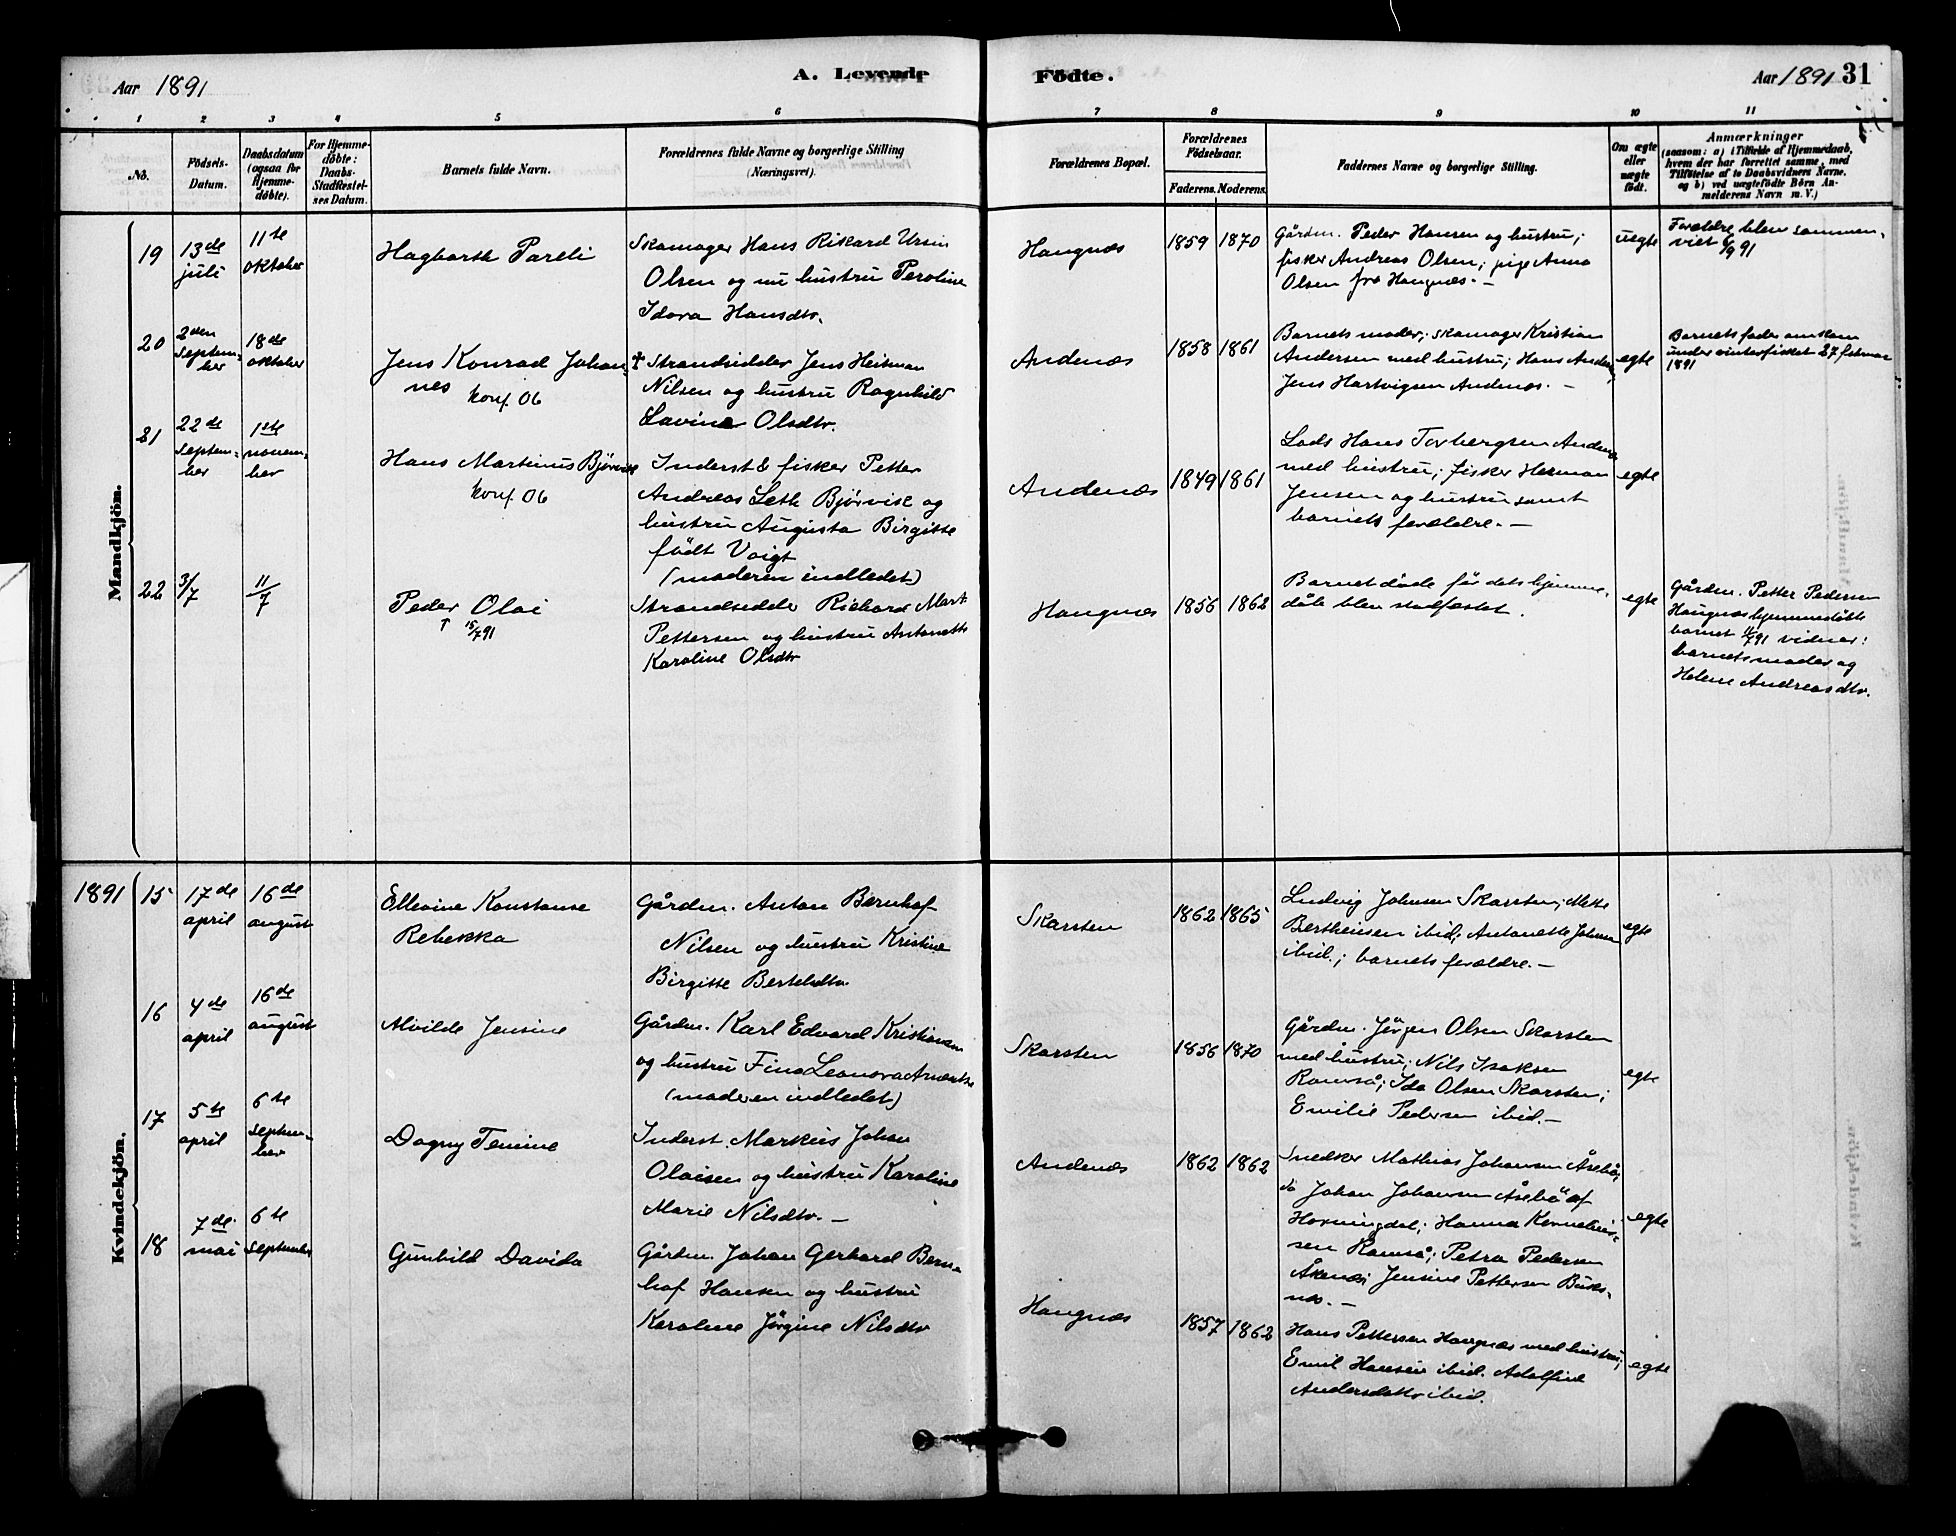 Aar 1891
A. Levende
Födte.
Aar 1891 31
1 2 3 4 5 6 7 8 9 10 11
No.
Födsels-
Datum.
Daabsdatum
(ogsaa for
Hjemme-
döbte).
For Hjemme-
døbte:
Daabs-
Stadfæstel-
ses Datum.
Barnets fulde Navn.
Forældrenes fulde Navne og borgerlige Stilling
(Næringsvei).
Forældrenes Bopæl.
Forældrenes
Födselsaar.
Faderens. Moderens.
Faddernes Navne og borgerlige Stilling.
Om ægte
eller
uægte
födt.
Anmærkninger
(saasom: a) i Tilfælde af Hjemmedaab,
hvem der har forrettet samme, med
Tilföielse af to Daabsvidners Navne,
og b) ved uægtefödte Börn An-
melderens Navn m. V.)
Mandkjön.
19
13de
juli
11te
oktober
Hagbarth Pareli
Skomager Hans Rikard Ursin
Olsen og nu hustru Peroline
Idora Hansdtr.
Haugnæs
1859 1870
Gårdm. Peder Hansen og hustru;
fisker Andreas Olsen; pige Anna
Olsen fra Haugnæs. –
uegte
Forældre blev sammen-
viet 6/9 91
20
2den
septem-
ber
18de
oktober
Jens Konrad Johan-
nes
konf. 06
† Strandsidder Jens Heitman
Nilsen og hustru Ragnhild
Lavina Olsdtr.
Andenæs
1858 1861
Barnets moder; skomager Kristian
Andersen med hustru; Hans
Jens Hartvigsen Andenæs. –
egte
Barnets fader omkom
under vinterfisket 27 februar
1891
21
22de
septem-
ber
1ste
novem-
ber
Hans Martinus Bjørvik
konf. 06
Inderst & fisker Petter
Andreas Leth Bjørvik og
hustru Augusta Birgitte
født Voigt
(moderen indledet)
Andenæs
1849 1861
Lods Hans Torbergsen Andenæs
med hustru; fisker Herman
Jensen og hustru samt
barnets forældre. –
egte
22
3/7
11/7
Peder Olai
† 15/7 91
Strandsidder Richard Mart.
Pettersen og hustru Antonette
Karoline Olsdtr
Haugnæs
1856 1862
Barnet døde før dets hjemme-
dåb blev stadfæstet.
egte
Gårdm. Petter Pedersen
Haugnæs hjemmedøbte
barnet 11/7 91 vidner:
barnets moder og
Helene Andreasdtr.
Kvindekjön.
1891
15
17de
april
16de
august
Ellevine Konstanse
Rebekka
Gårdm. Anton Bernhof
Nilsen og hustru Kristine
Birgitte Bertelsdtr.
Skarsten
1862 1865
Ludvig Johnsen Skarsten; Mette
Bertheusen ibid; Antonette Johnsen
ibid.; barnets forældre. –
egte
16
4de
april
16de
august
Alvilde Jensine
Gårdm. Karl Edvard Kristiansen
og hustru Fina Leonora
(moderen indledet)
Skarsten
1856 1870
Gårdm. Jørgen Olsen Skarsten
med hustru; Nils Isaksen
Ramså; Ida Olsen Skarsten;
Emilie Pedersen ibid. –
egte
17
5te
april
6te
septem-
ber
Dagny Temine
Inderst. Markus Johan
Olaisen og hustru Karoline
Marie Nilsdtr. –
Andenæs
1862 1862
Snedker Mathias Johansen Åsebö;
do Johan Johansen Åsebö af
Horningdal; Hanna Korneliu-
sen Ramså; Petra Pedersen
Åkenæs; Jensine Pettersen Buks-
næs. –
egte
18
7de
mai
6te
september
Gunhild Davida
Gårdm. Johan Gerhard Bern-
hof Hansen og hustru
Karoline Jørgine Nilsdtr
Haugnæs
1857 1862
Hans Pettersen Haugnæs med hustru;
Emil Hansen ibid. Adolfine
Andersdattr ibid.
egte